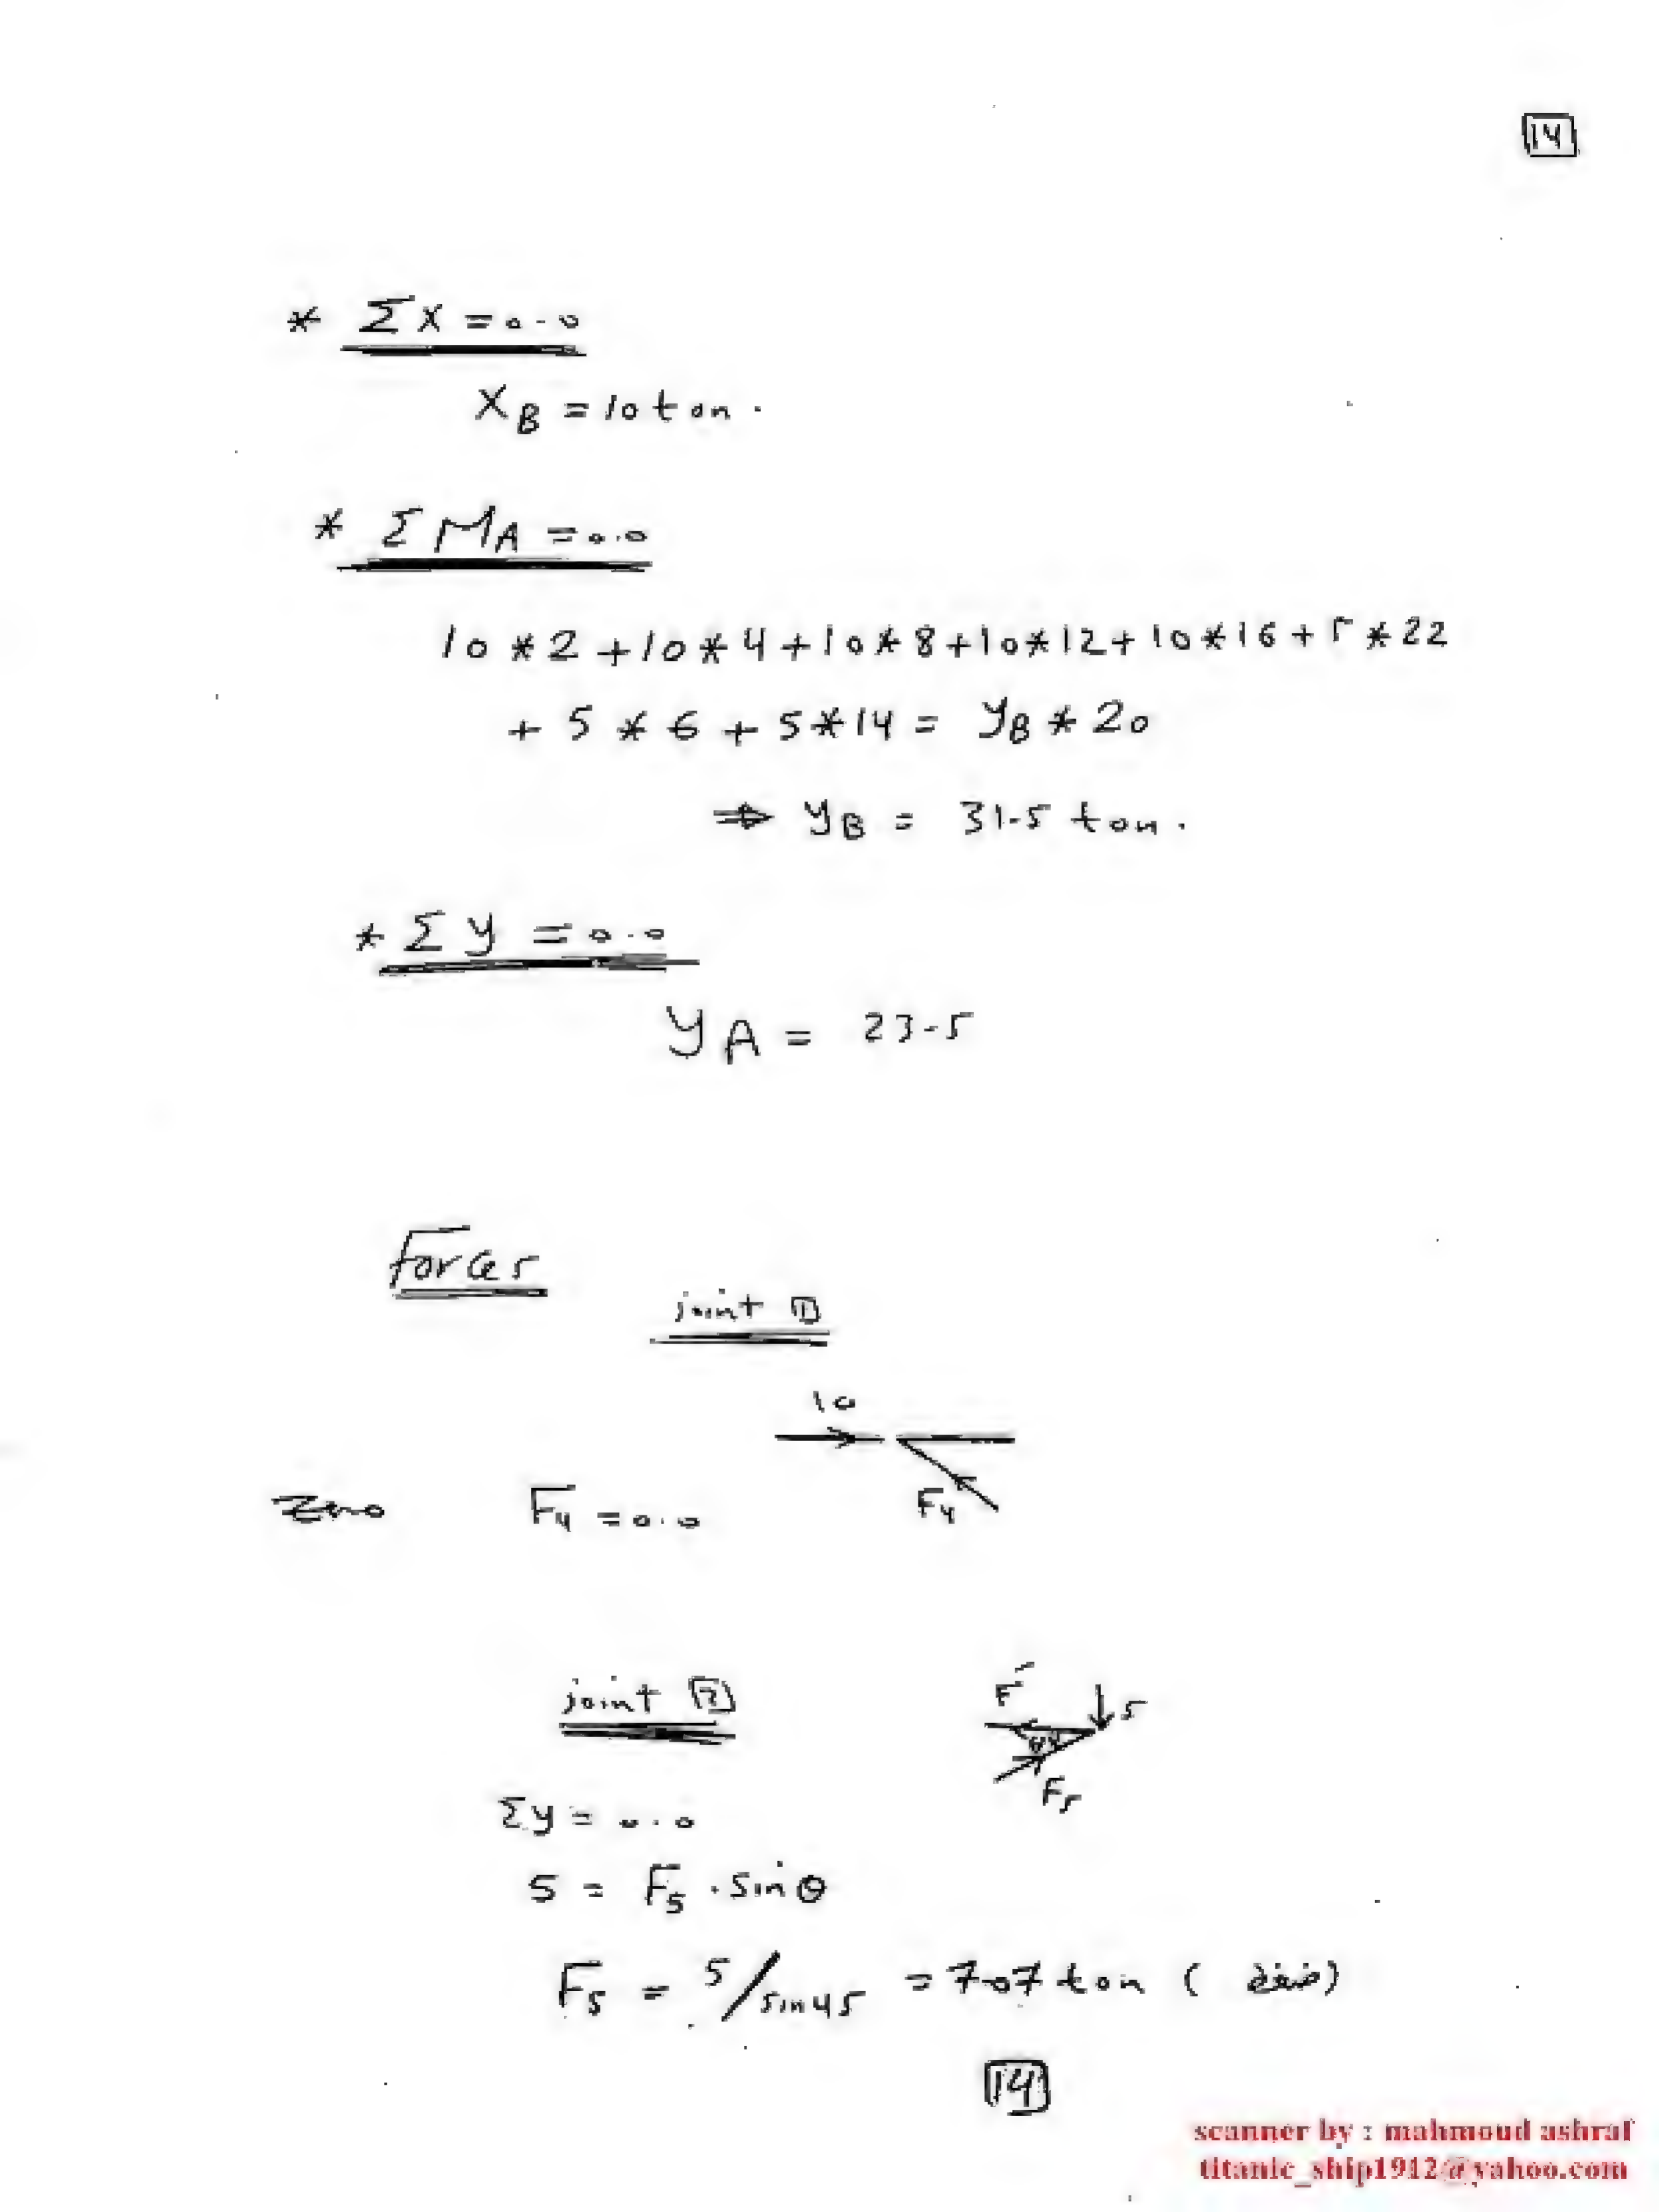 14
* ΣX = 0.0
X_B = 10 ton.
* ΣM_A = 0.0
10 * 2 + 10 * 4 + 10 * 8 + 10 * 12 + 10 * 16 + 5 * 22
+ 5 * 6 + 5 * 14 = y_B * 20
⇒ y_B = 31.5 ton.
* Σy = 0.0
y_A = 23.5
Forces
joint 1
10
F4
Zero F4 = 0.0
joint 2
F 5
F5
Σy = 0.0
5 = F5 . sin θ
F5 = 5/sin45 = 7.07 ton (ضغط)
14
scanner by : mahmoud ashraf
titanic_ship1912@yahoo.com